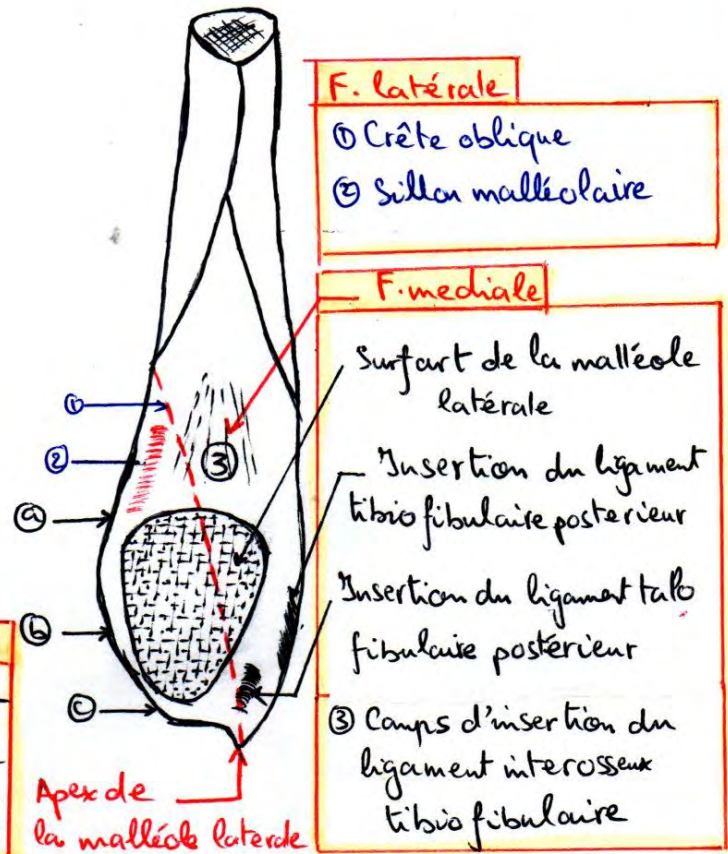 F. latérale
① Crête oblique
② Sillon malléolaire
F. mediale
Surfart de la malléole
latérale
Insertion du ligament
tibio fibulaire posterieur
Insertion du ligament talo
fibulaire posterieur
③ Camps d'insertion du
ligament interosseux
tibio fibulaire
①
②
③
ⓐ
ⓑ
ⓒ
Apex de
la malléole laterale